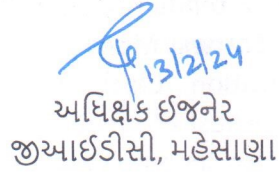 13/2/24
અધિક્ષક ઈજનેર
જીઆઈડીસી, મહેસાણા